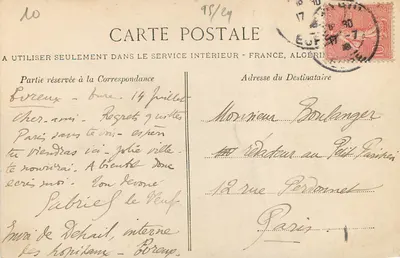 10
15/29
CARTE POSTALE
A UTILISER SEULEMENT DANS LE SERVICE INTÉRIEUR - FRANCE, ALGÉRI
Partie réservée à la Correspondance
Adresse du Destinataire
Evreux - Eure. 14 Juillet
Cher ami. Regrets quitter
Paris sans te voir - espère
tu viendras ici - jolie ville
te nourrirai. A bientôt donc
écris moi. Ton dévoué
Gabriel le Neuf
interne
des hopitaux - Evreux
Monsieur Boulanger
rédacteur au Petit Parisien
12 rue Perdonnet
Paris